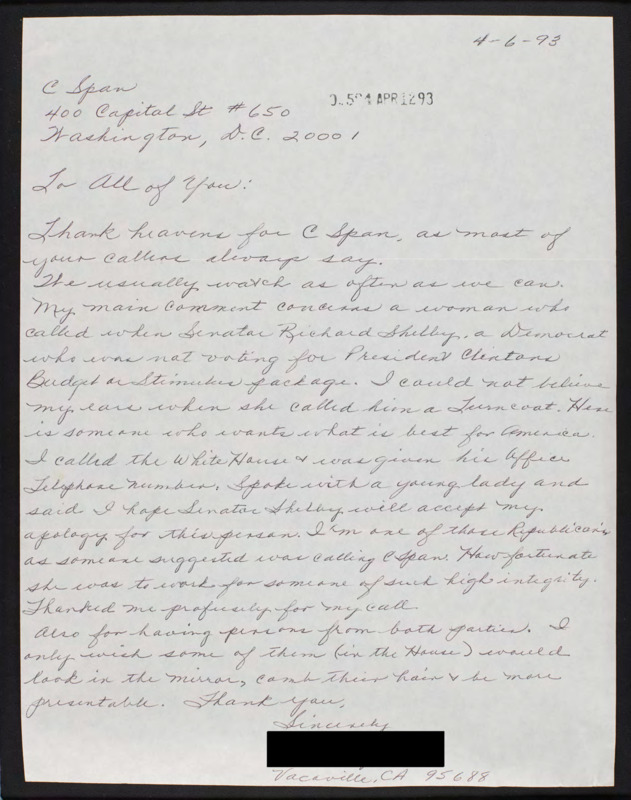 4-6-93
C Span
400 Capital St #650
Washington, D.C. 20001
APR 12 93
To All of You:
Thank heavens for C Span, as most of
your callers always say.
We usually watch as often as we can.
My main comment concerns a woman who
called when Senator Richard Shelby, a Democrat
who was not voting for President Clintons
Budget or Stimulus package. I could not believe
my ears when she called him a Turncoat. Here
is someone who wants what is best for America.
I called the White House & was given his office
Telephone number. Spoke with a young lady and
said I hope Senator Shelby will accept my
apology for this person. I'm one of those Republicans
as someone suggested was calling C Span. How fortunate
she was to work for someone of such high integrity.
Thanked me profusely for my call.
Also for having persons from both parties. I
only wish some of them (in the House) would
look in the mirror, comb their hair & be more
presentable. Thank you,
Sincerely
Vacaville, CA 95688